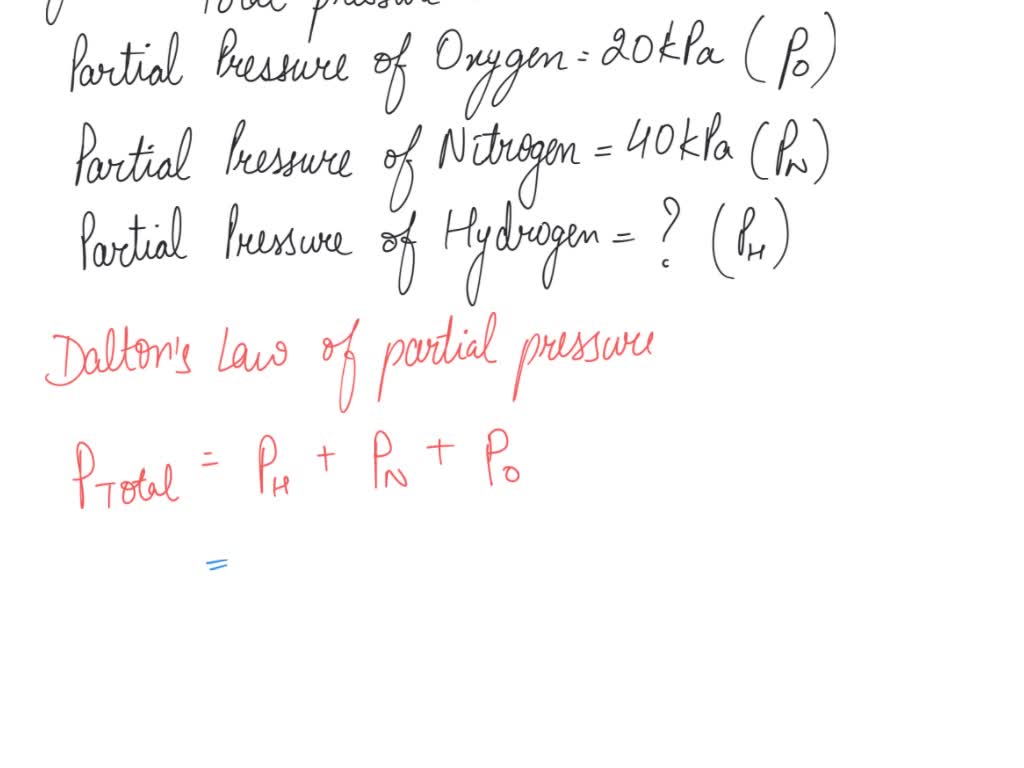 Total pressure
Partial Pressure of Oxygen = 20kPa (PO)
Partial Pressure of Nitrogen = 40kPa (PN)
Partial Pressure of Hydrogen = ? (PH)
Dalton's Law of partial pressure
PTotal = PH + PN + PO
=